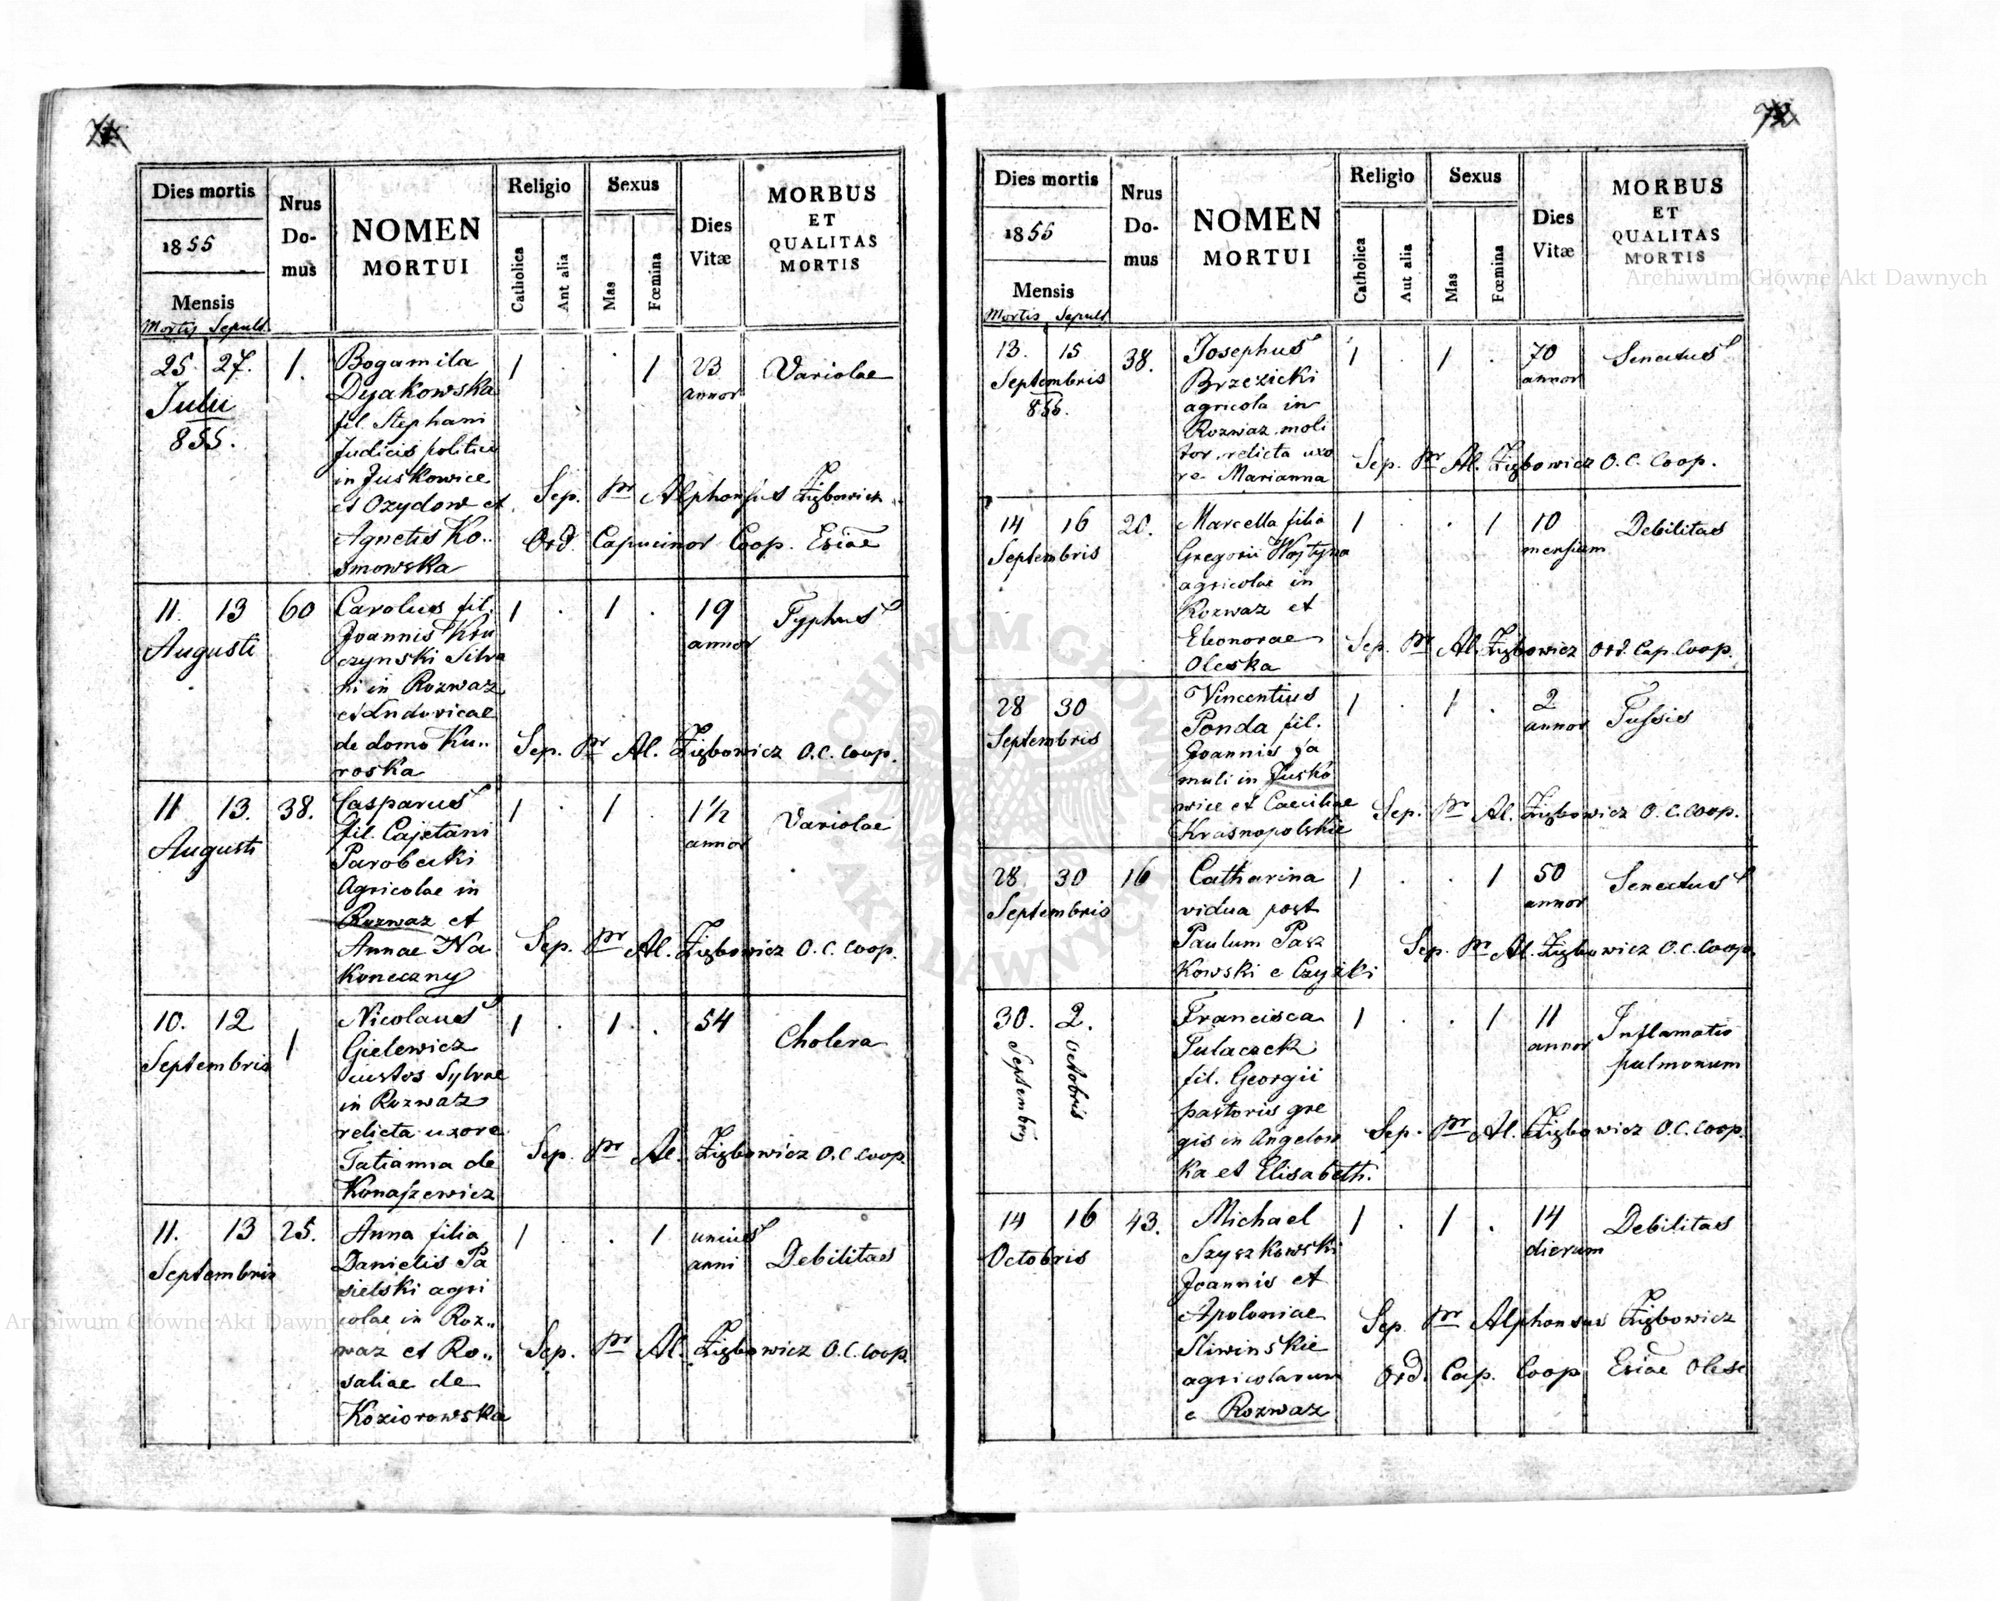 Dies mortis
1855
Mensis
Mortis Sepult.
Nrus
Do-
mus
NOMEN
MORTUI
Religio
Catholica
Aut alia
Sexus
Mas
Fœmina
Dies
Vitæ
MORBUS
ET
QUALITAS
MORTIS
25. 27. 1.
Julii
855.
Bogumila
Dyakowska
fil. Stephani
Judicis politici
in Juskowice
et Ozydow et
Agnetis Ko„
smowska
1 . . 1
23
annor
Variolae
Sep. pr Alphonsus Ziębowicz
Ord. Capucinor Coop. Ecciae
11. 13 60
Augusti
Carolus fil.
Joannis Kru
czynski Silva
ni in Rozwaz
et Ludovicae
de domo Ku„
roska
1 . 1 .
19
annor
Typhus
Sep. pr Al. Ziębowicz O.C. Coop.
11 13. 38.
Augusti
Casparus
fil. Cajetani
Parobecki
Agricolae in
Rozwaz et
Annae Na
Koneczny
1 . 1 .
1 1/2
annor
Variolae
Sep. pr Al. Ziębowicz O.C. Coop.
10. 12 1
Septembris
Nicolaus
Gielewicz
custos Sylvae
in Rozwaz
relicta uxore
Tatianna de
Konaszewicz
1 . 1 .
54
Cholera
Sep. pr Al. Ziębowicz O.C. Coop.
11. 13 25.
Septembris
Anna filia
Danielis Pa
sielski agri
colae in Roz„
waz et Ro„
saliae de
Koziorowska
1 . . 1
unius
anni
Debilitas
Sep. pr Al. Ziębowicz O.C. Coop.
72
Dies mortis
1855
Mensis
Mortis Sepult
Nrus
Do-
mus
NOMEN
MORTUI
Religio
Catholica
Aut alia
Sexus
Mas
Fœmina
Dies
Vitæ
MORBUS
ET
QUALITAS
MORTIS
13. 15 38.
Septembris
855.
Josephus
Brzezicki
agricola in
Rozwaz moli
tor relicta uxo
re Marianna
1 . 1 .
70
annor
Senectus
Sep. pr Al. Ziębowicz O.C. Coop.
14 16 20.
Septembris
Marcella filia
Gregorii Wojtyna
agricolae in
Rozwaz et
Eleonorae
Oleska
1 . . 1
10
mensium
Debilitas
Sep. pr Al. Ziębowicz Ord. Cap. Coop.
28 30
Septembris
Vincentius
Ponda fil.
Joannis fa
muli in Jusko
wice et Caeciliae
Krasnopolskie
1 . 1 .
2
annor
Tussis
Sep. pr Al. Ziębowicz O.C. Coop.
28. 30 16
Septembris
Catharina
vidua post
Paulum Pasz
Kowski e Czyżki
1 . . 1
50
annor
Senectus
Sep. pr Al. Ziębowicz O.C. Coop.
30. 2.
Septembris
Octobris
Francisca
Tulaczek
fil. Georgii
pastoris gre
gis in Angelow
ka et Elisabeth.
1 . . 1
11
annor
Inflamatio
pulmonum
Sep. pr Al. Ziębowicz O.C. Coop.
14 16 43.
Octobris
Michael
Szyszkowski
Joannis et
Apoloniae
Sliwinskie
agricolarum
e Rozwaz
1 . 1 .
14
dierum
Debilitas
Sep. pr Alphonsus Ziębowicz
Ord. Cap. Coop Ecciae Olesc
Archiwum Główne Akt Dawnych
Archiwum Główne Akt Dawnych
ARCHIWUM GŁÓWNE AKT DAWNYCH